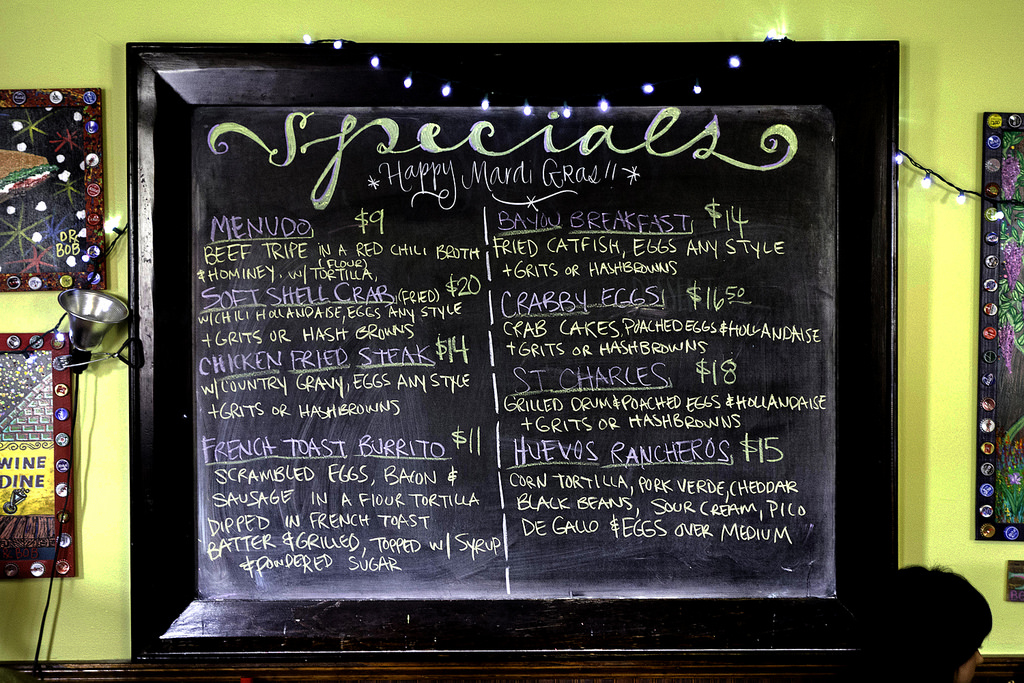 Specials
*Happy Mardi Gras!!*
MENUDO $9
BEEF TRIPE IN A RED CHILI BROTH
& HOMINEY, W/ (FLOUR) TORTILLA,
SOFT SHELL CRAB (FRIED) $20
W/ CHILI HOLLANDAISE, EGGS ANY STYLE
+ GRITS OR HASH BROWNS
CHICKEN FRIED STEAK $14
W/ COUNTRY GRAVY, EGGS ANY STYLE
+ GRITS OR HASHBROWNS
FRENCH TOAST BURRITO $11
SCRAMBLED EGGS, BACON &
SAUSAGE IN A FLOUR TORTILLA
DIPPED IN FRENCH TOAST
BATTER & GRILLED, TOPPED W/ SYRUP
& POWDERED SUGAR
BAYOU BREAKFAST $14
FRIED CATFISH, EGGS ANY STYLE
+ GRITS OR HASHBROWNS
CRABBY EGGS $16.50
CRAB CAKES, POACHED EGGS & HOLLANDAISE
+ GRITS OR HASHBROWNS
ST CHARLES $18
GRILLED DRUM & POACHED EGGS & HOLLANDAISE
+ GRITS OR HASHBROWNS
HUEVOS RANCHEROS $15
CORN TORTILLA, PORK VERDE, CHEDDAR
BLACK BEANS, SOUR CREAM, PICO
DE GALLO & EGGS OVER MEDIUM
DR.
BOB
WINE
DINE
DR BOB